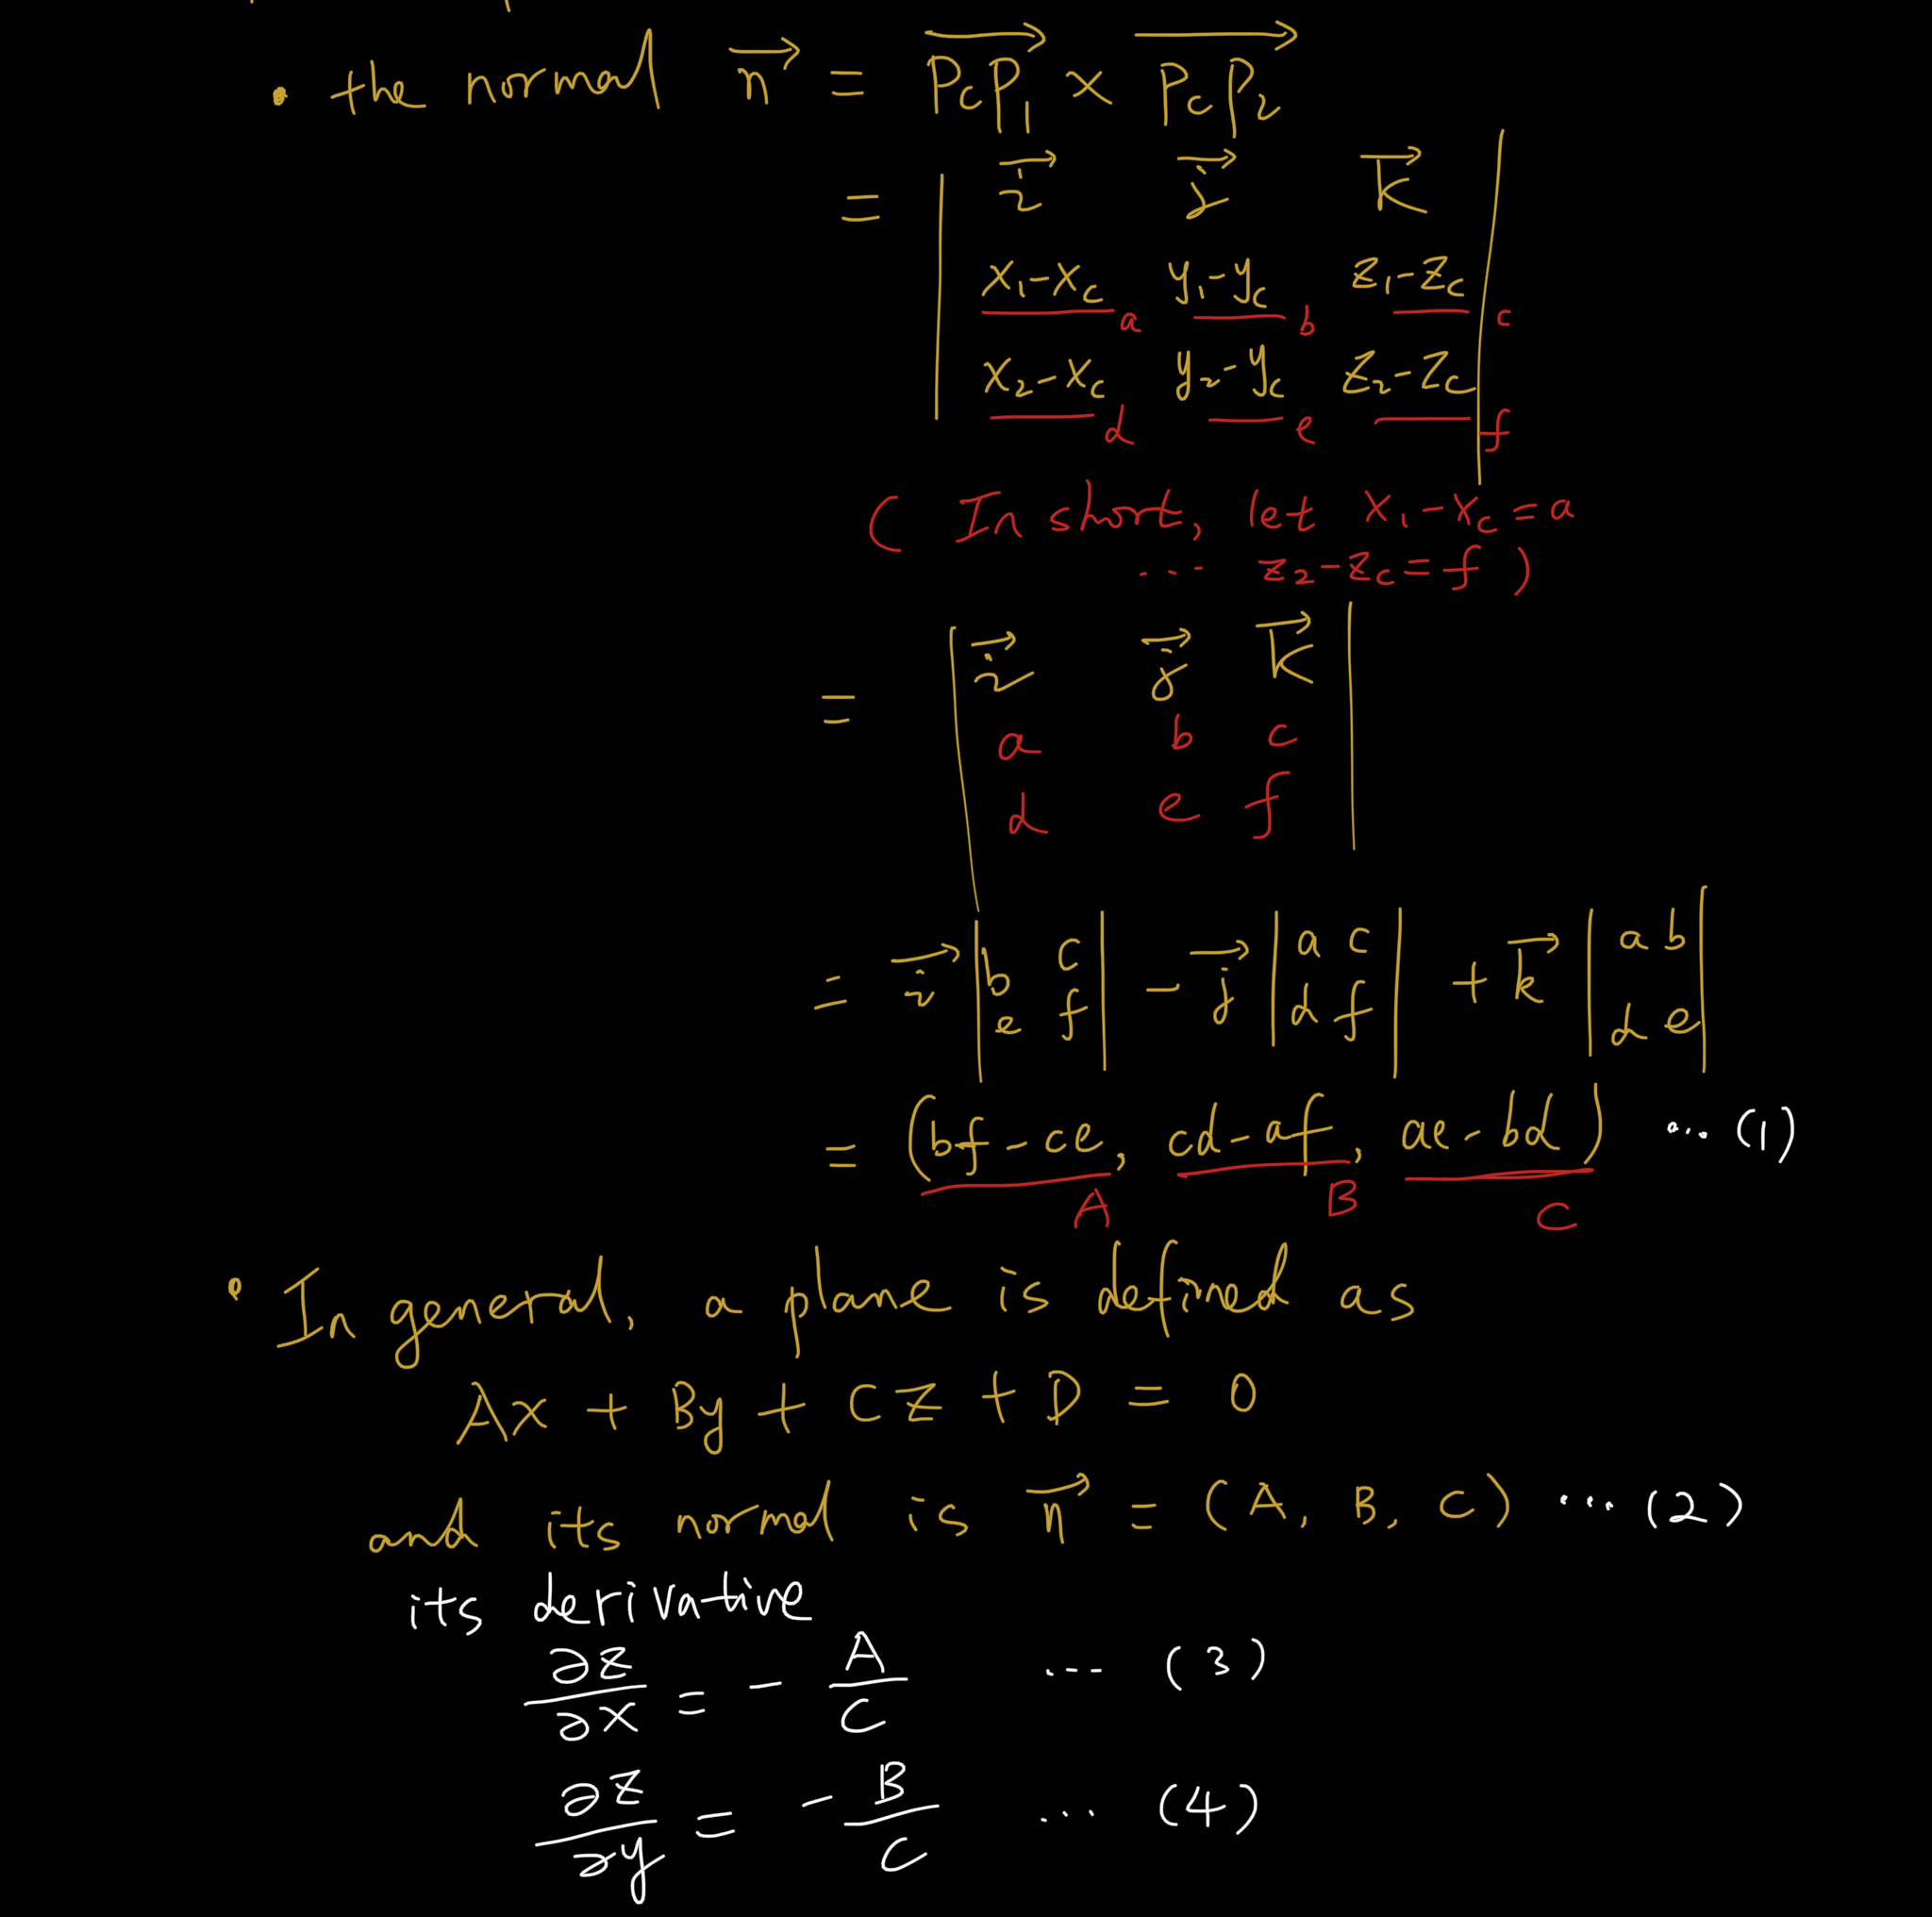 • the normal n⃗ = PcP₁ × PcP₂
= | i⃗ j⃗ k⃗ |
x₁-xc a y₁-yc b z₁-zc c
x₂-xc d y₂-yc e z₂-zc f
( In short, let x₁-xc = a
... z₂-zc = f )
= | i⃗ j⃗ k⃗ |
a b c
d e f
= i⃗ | b c | - j⃗ | a c | + k⃗ | a b |
e f d f d e
= (bf-ce, cd-af, ae-bd) ... (1)
A B C
• In general, a plane is defined as
Ax + By + CZ + D = 0
and its normal is n⃗ = (A, B, C) ... (2)
its derivative
∂z/∂x = - A/C ... (3)
∂z/∂y = - B/C ... (4)